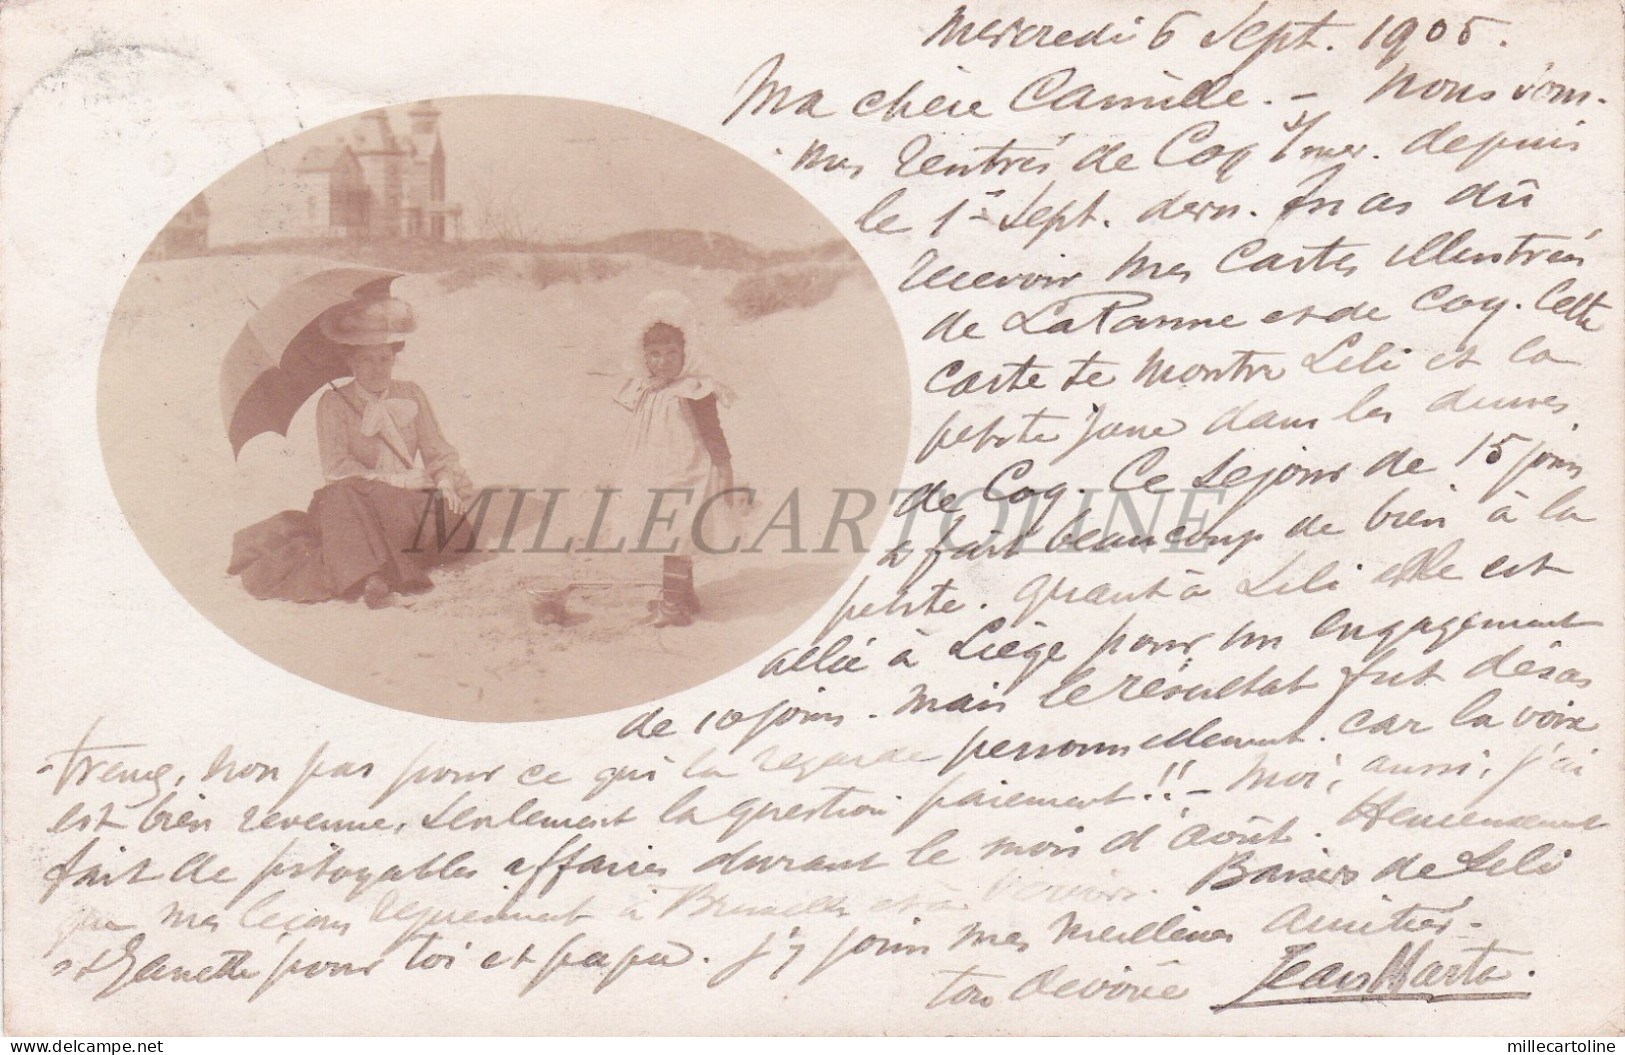 Mercredi 6 Sept. 1905.
Ma chère Camille. – Nous som-
mes rentrés de Coq s/mer. depuis
le 1er Sept. dern. Tu as dû
recevoir mes cartes illustrées
de La Panne et de Coq. Cette
carte te montre Lili et la
petite Jane dans les dunes
de Coq. Ce séjour de 15 jours
a fait beaucoup de bien à la
petite. Quant à Lili elle est
allée à Liège pour un engagement
de 10 jours. Mais le résultat fut désas
-treux, non pas pour ce qui la regarde personnellement. car la voix
est bien revenue, seulement la question paiement!! – Moi, aussi, j'ai
fait de pitoyables affaires durant le mois d'août. Heureusement
que mes leçons reprennent à Bruxelles et à Verviers. Baisers de Lili
et Janette pour toi et papa. J'y joins mes meilleures amitiés-
ton dévoué Jean Marta.
MILLECARTOLINE
delcampe.net
millecartoline